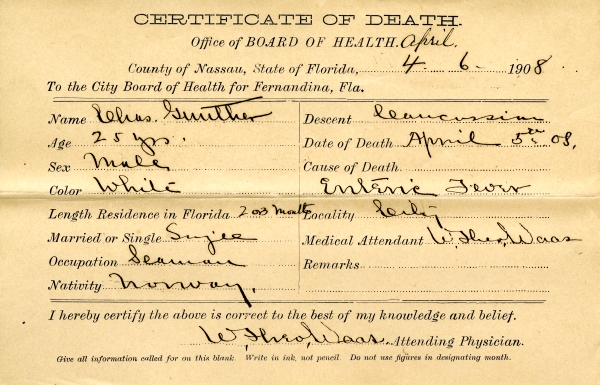 CERTIFICATE OF DEATH.
Office of BOARD OF HEALTH. April.
County of Nassau, State of Florida, 4 6 1908
To the City Board of Health for Fernandina, Fla.
Name Chas. Gunther
Age 25 yrs.
Sex Male
Color White
Length Residence in Florida 2 or 3 months
Married or Single Single
Occupation Seaman
Nativity Norway.
Descent Caucussian
Date of Death April 5th 08.
Cause of Death
Enteric Fever
Locality City
Medical Attendant W. Theo, Waas
Remarks
I hereby certify the above is correct to the best of my knowledge and belief.
W, Theo, Waas. Attending Physician.
Give all information called for on this blank. Write in ink, not pencil. Do not use figures in designating month.